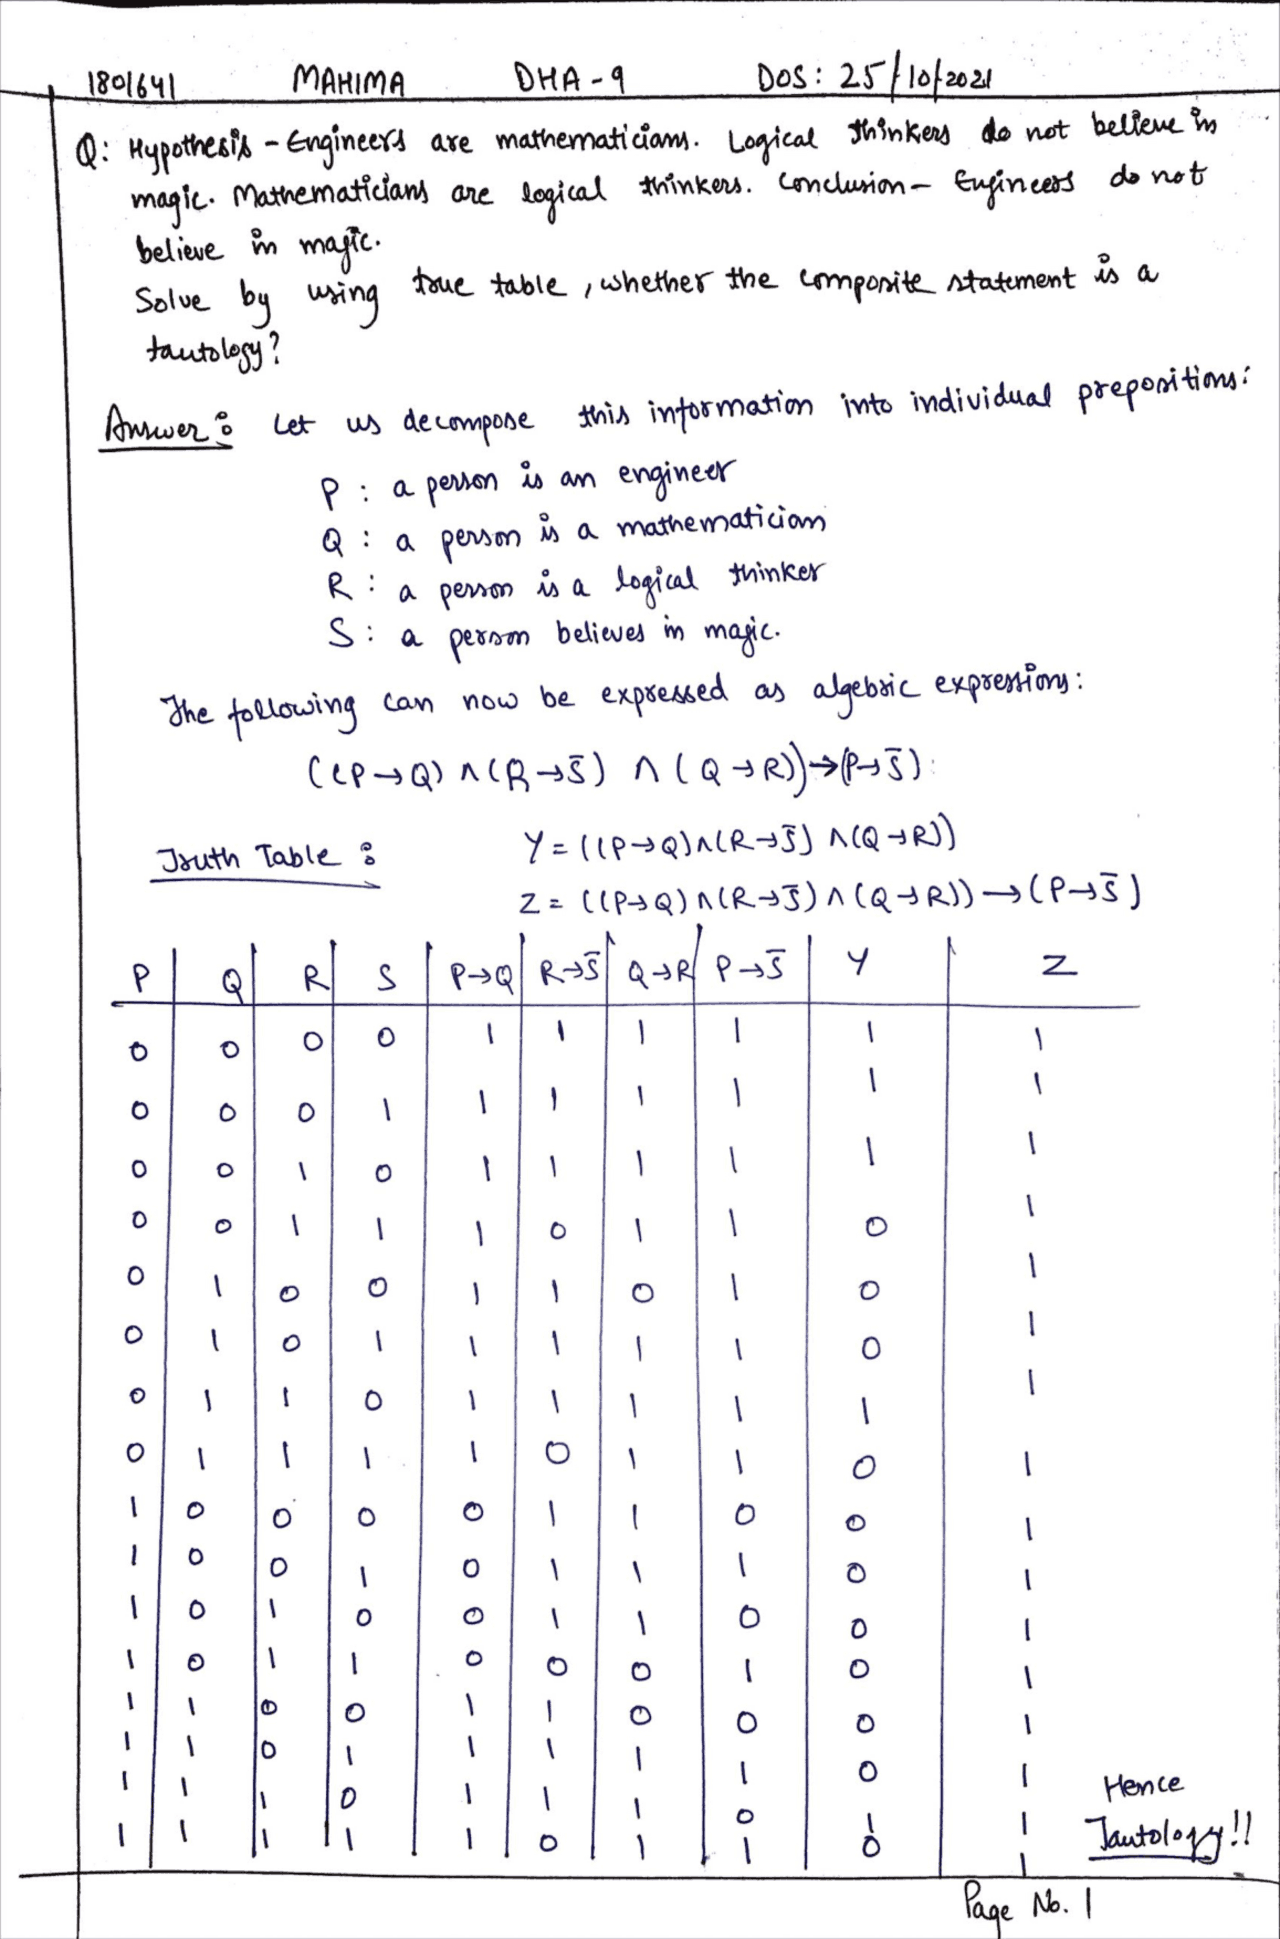 1801641 MAHIMA DHA-9 DOS: 25/10/2021
Q: Hypothesis - Engineers are mathematicians. Logical thinkers do not believe in
magic. Mathematicians are logical thinkers. Conclusion - Engineers do not
believe in magic.
Solve by using true table, whether the composite statement is a
tautology?
Answer: Let us decompose this information into individual prepositions:
P : a person is an engineer
Q : a person is a mathematician
R : a person is a logical thinker
S : a person believes in magic.
The following can now be expressed as algebric expressions:
((P→Q) ∧ (R→S̄) ∧ (Q→R))→(P→S̄)
Truth Table : Y = ((P→Q)∧(R→S̄) ∧(Q→R))
Z = ((P→Q)∧(R→S̄)∧(Q→R))→(P→S̄)
P Q R S P→Q R→S̄ Q→R P→S̄ Y Z
0 0 0 0 1 1 1 1 1 1
0 0 0 1 1 1 1 1 1 1
0 0 1 0 1 1 1 1 1 1
0 0 1 1 1 0 1 1 0 1
0 1 0 0 1 1 0 1 0 1
0 1 0 1 1 1 1 1 0 1
0 1 1 0 1 1 1 1 1 1
0 1 1 1 1 0 1 1 0 1
1 0 0 0 0 1 1 0 0 1
1 0 0 1 0 1 1 1 0 1
1 0 1 0 0 1 1 0 0 1
1 0 1 1 0 0 0 1 0 1
1 1 0 0 1 1 0 0 0 1
1 1 0 1 1 1 1 1 0 1
1 1 1 0 1 1 1 0 1 1
1 1 1 1 1 0 1 1 0 1
Hence
Tautology!!
Page No. 1